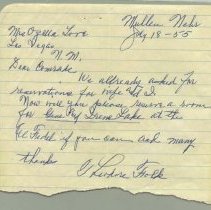 Mullen Nebr
July 18-55
Mrs Ozella Love
Las Vegas,
N.M.
Dear Comrade
We allready asked for
reservations for wife & I
Now will you please reserve a room
for Guss & Irene Lake at the
El Fidel if you can and many
thanks
Theodore